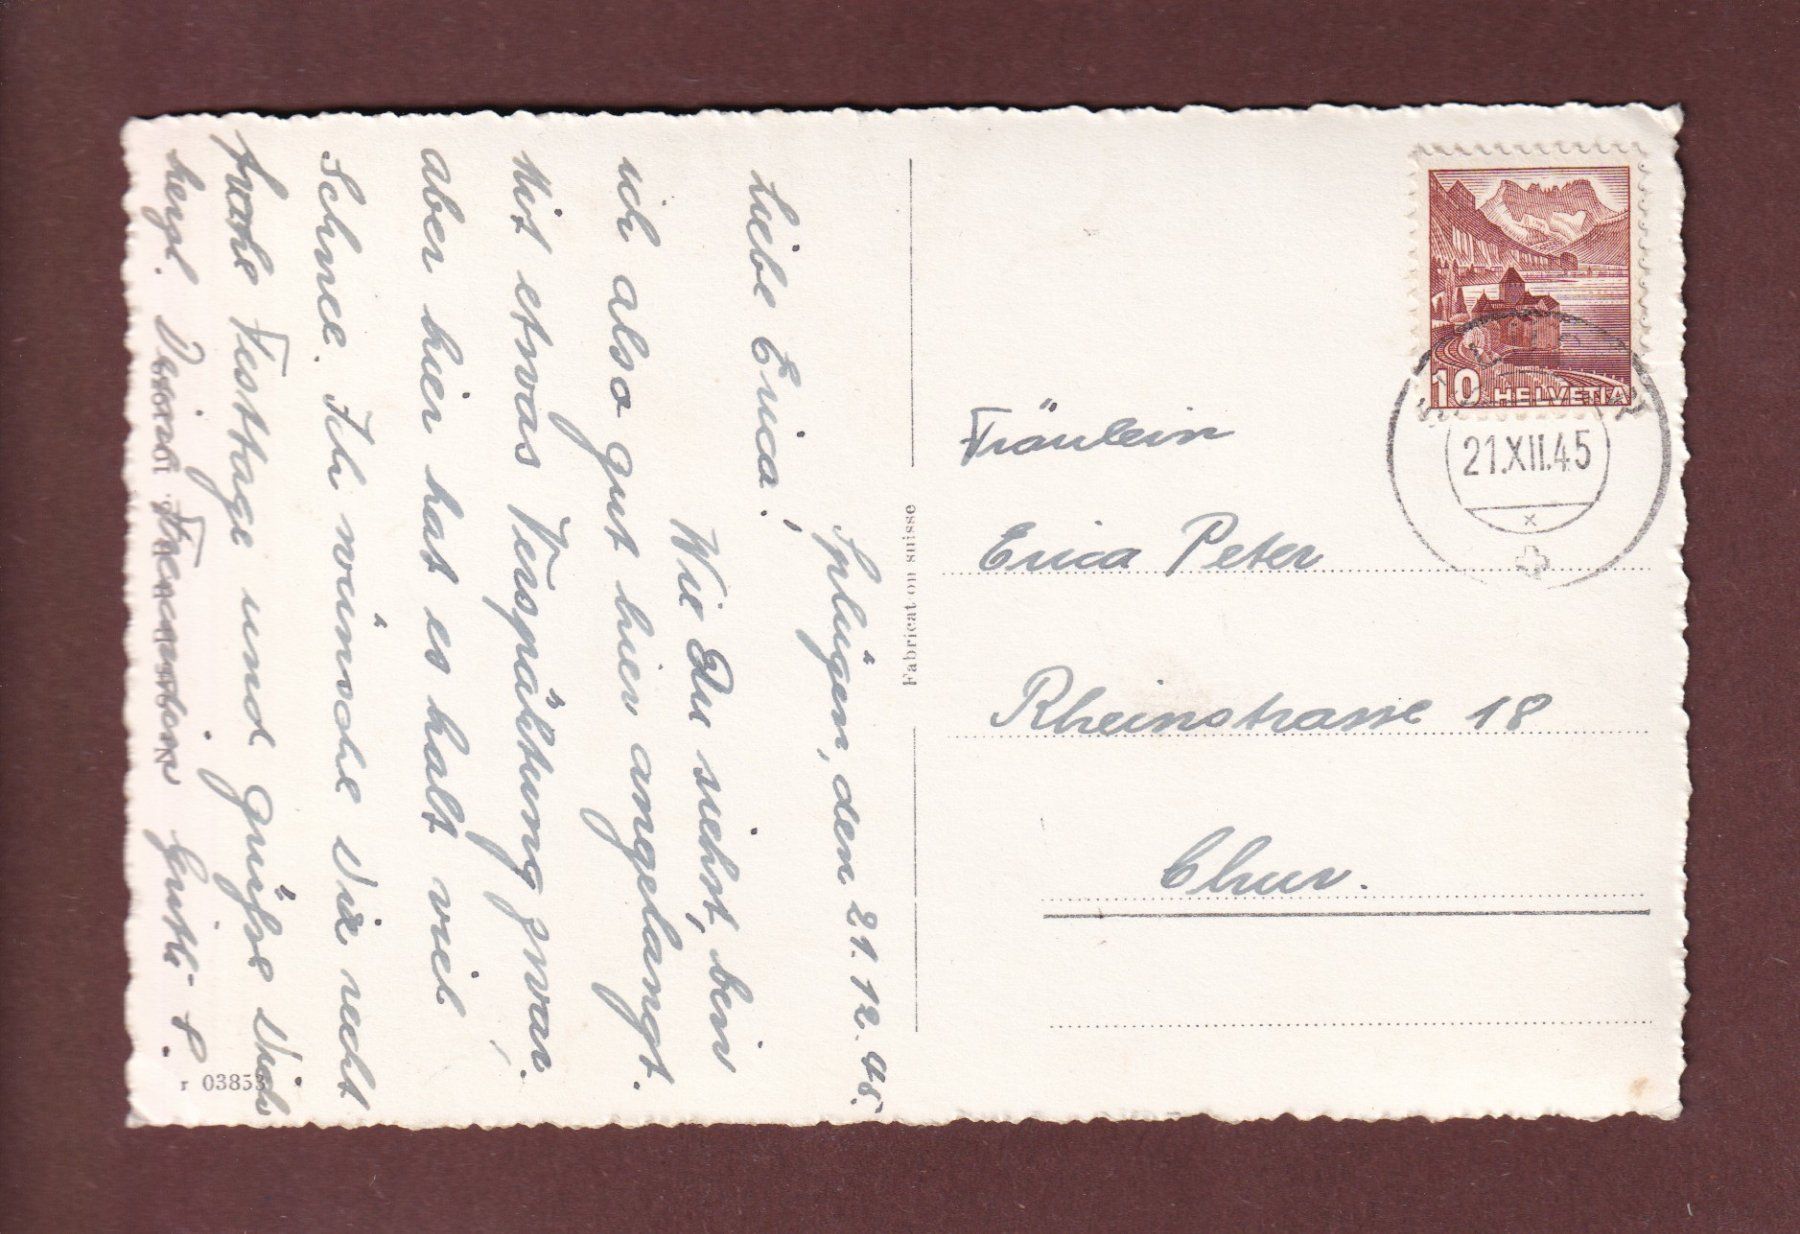 Splügen, den 21.12.45.
Liebe Erica!
Wie Du siehst, bin
ich also gut hier angelangt.
Mit etwas Verspähtung zwar,
aber hier hat es halt viel
Schnee. Ich wünsche Dir recht
frohe Festtage und grüsse Dich
herzl. Deine Freundin Gritli P.
r 03853
Fabricat on suisse
10 HELVETIA
21.XII.45
Fräulein
Erica Peter
Rheinstrasse 18
Chur.